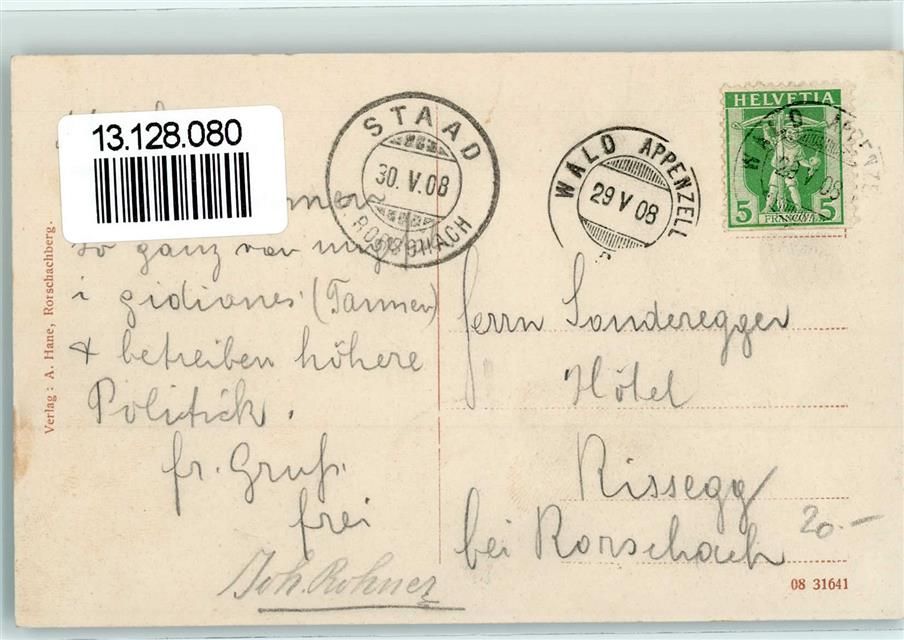 13.128.080
STAAD
30. V. 08
RORSCHACH
WALD APPENZELL
29 V 08
HELVETIA
5 FRANCO 5
WALD APPENZELL
29 V 08
so ganz von
i gidiones (Tannen)
+ betreiben höhere
Politick.
fr. Gruß.
frei
Joh. Rohner
Herrn Sonderegger
Hôtel
Rissegg
bei Rorschach
20.-
Verlag: A. Hane, Rorschachberg.
08 31641